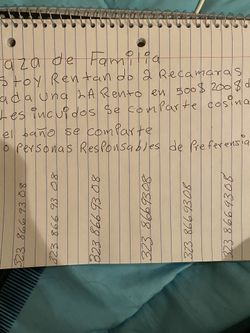 aza de Familia
stoy Rentando 2 Recamaras
ada una LA Rento en 500$ 200$ d
les incuidos Se comparte cosina
el baño se comparte
o personas Responsables de Preferensia
323 866 93 08
323 866 93 08
323 866 93 08
323 866 9308
323 866 9308
323 866 9308